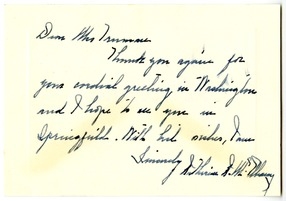 Dear Mrs Truman
Thank you again for
your cordial greeting in Washington
and I hope to see you in
Springfield. With best wishes, I am
Sincerely